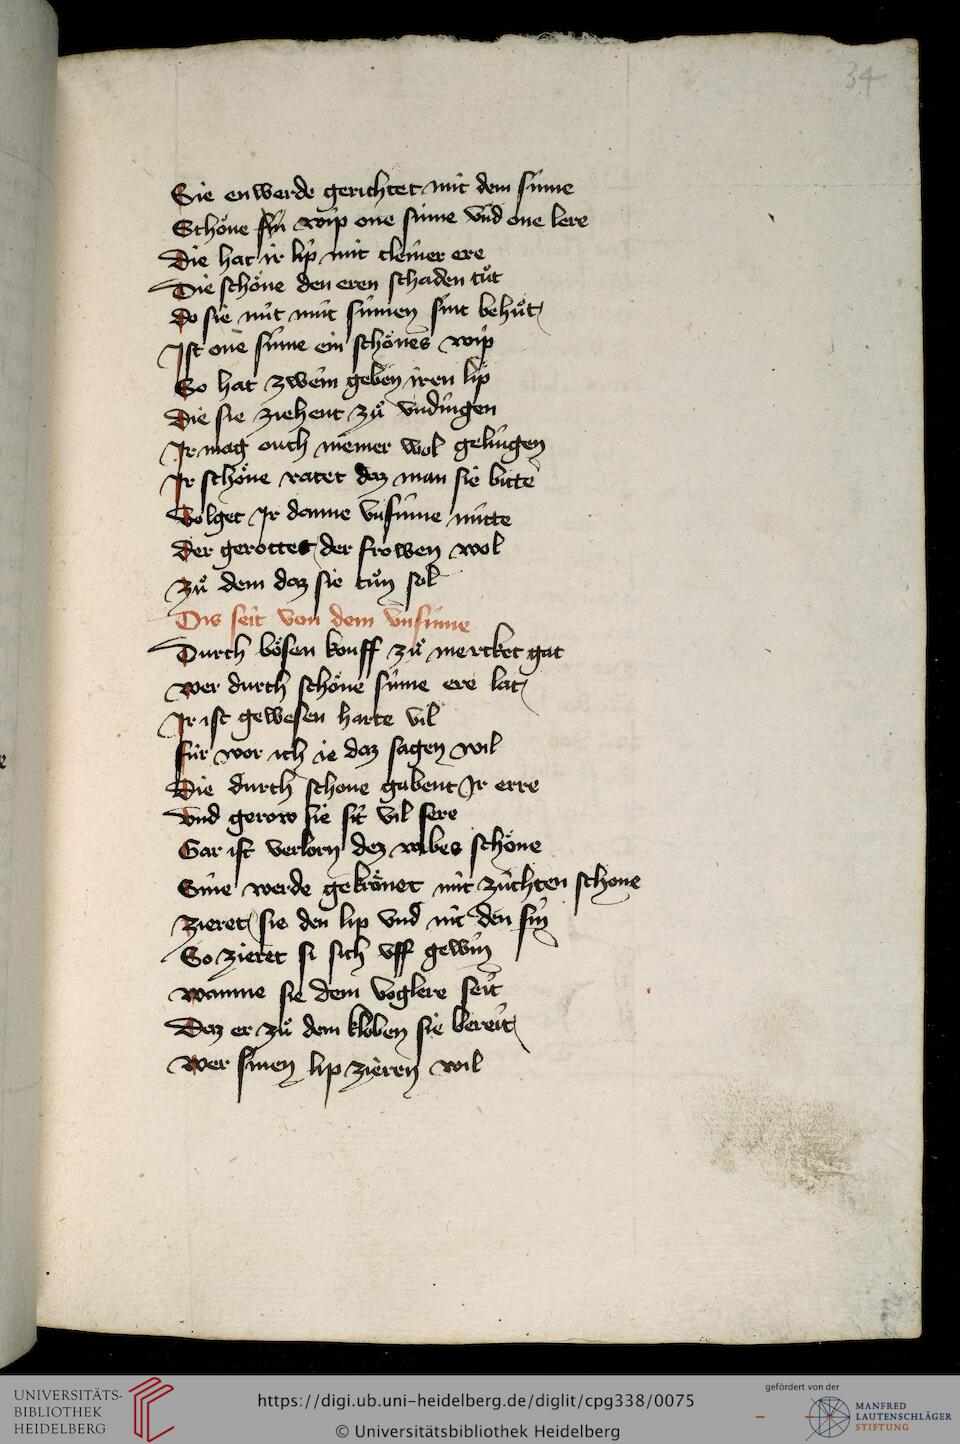 34
Sie enwerde gerichtet mit dem sinne
Schoͤne sin wip one sinne vnd one lere
Die hat ir lip mit cleiner ere
Die schoͤne den eren schaden tuͦt
Do sie nit mit sinnen sint behuͦt
Ist one sinne ein schoͤnes wip
So hat zwein geben iren lip
Die sie ziehent zuͦ vndingen
Ir mag ouch niemer wol gelingen
Ir schoͤne ratet daz man sie bitte
Volget Ir danne vnsinne mitte
Der gerottet der frowen wol
Zuͦ dem daz sie tuͦn sol
Dis seit von dem vnsinne
Durch boͤsen kouff zuͦ mercket gat
Wer durch schoͤne sinne ere lat
Ir ist gewesen harte vil
Fúr wor ich ie daz sagen wil
Die durch schone gabent Ir erre
Vnd gerow sie sit vil sere
Gar ist verlorn dez wibes schoͤne
Sine werde gekroͤnet mit zúchten schone
Zieret sie den lip vnd nit den sin
So zieret si sich vff gewin
Wanne sie dem voglere seit
Daz er zuͦ dem kloben sie bereit
Wer sinen lip zieren wil
UNIVERSITÄTS-
BIBLIOTHEK
HEIDELBERG
https://digi.ub.uni-heidelberg.de/diglit/cpg338/0075
© Universitätsbibliothek Heidelberg
gefördert von der
MANFRED
LAUTENSCHLÄGER
STIFTUNG